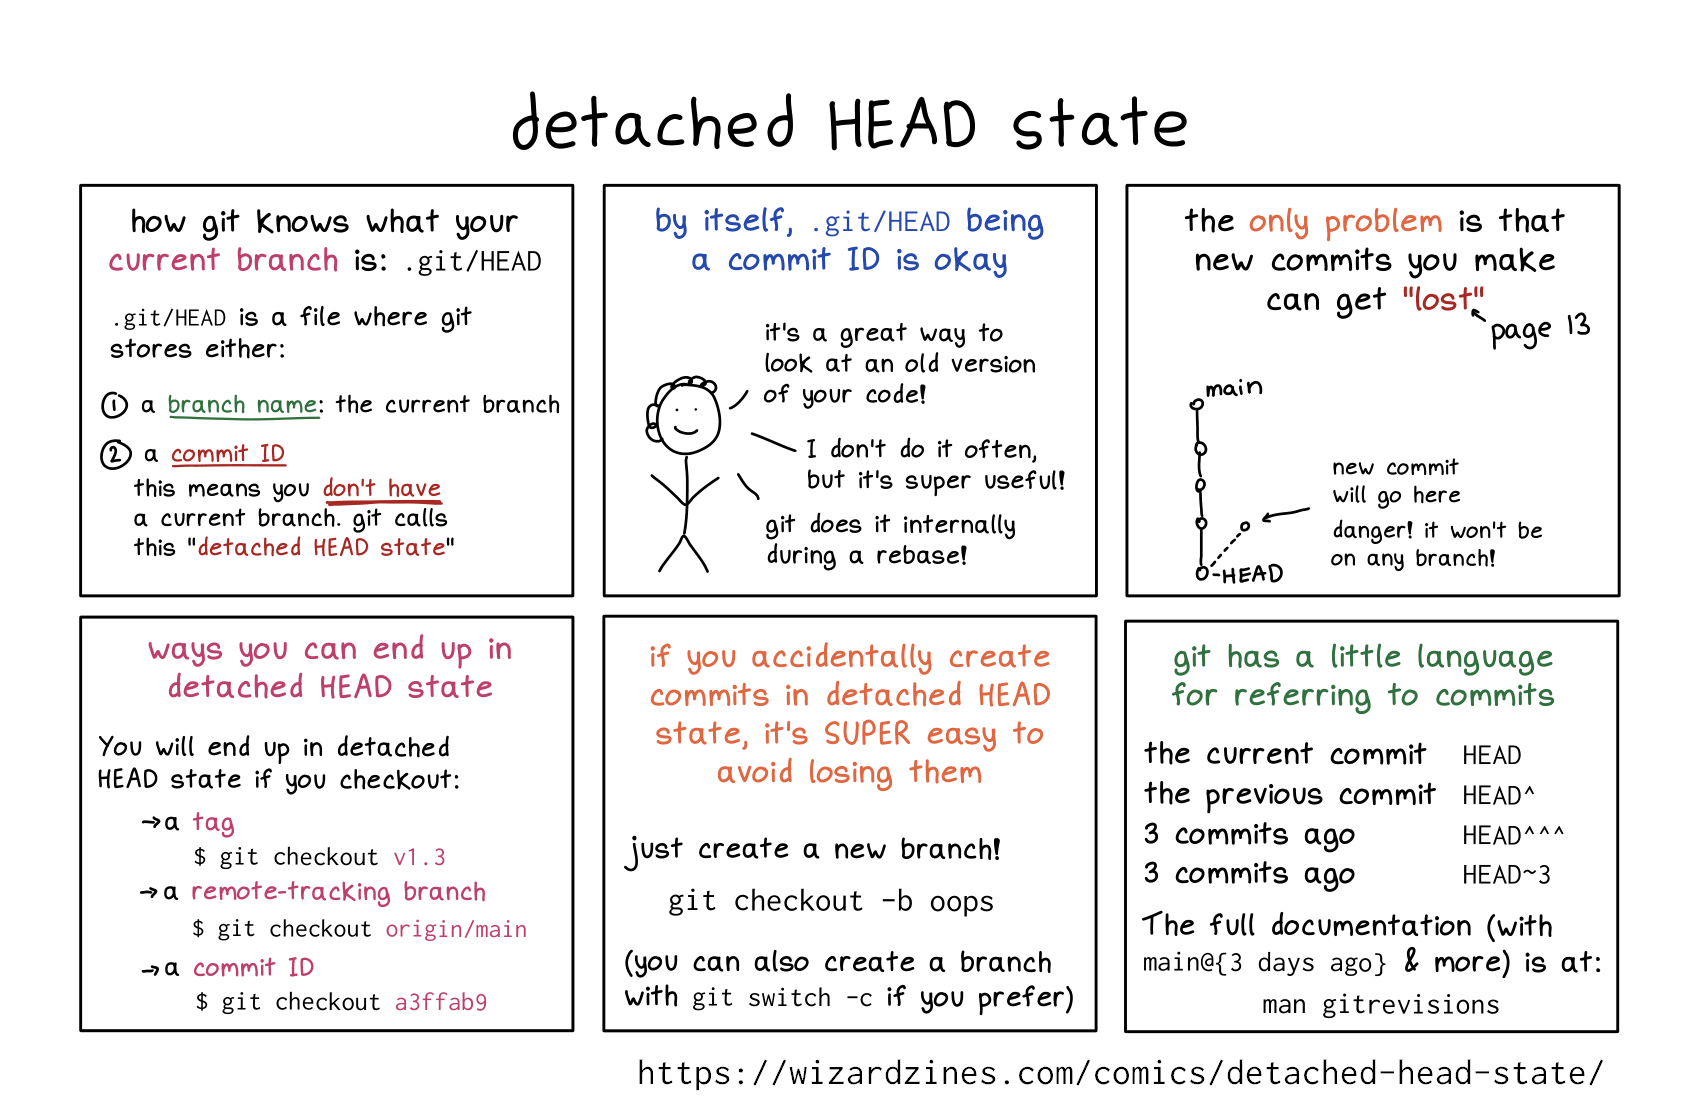 detached HEAD state
how git knows what your
current branch is: .git/HEAD
.git/HEAD is a file where git
stores either:
① a branch name: the current branch
② a commit ID
this means you don't have
a current branch. git calls
this "detached HEAD state"
by itself, .git/HEAD being
a commit ID is okay
it's a great way to
look at an old version
of your code!
I don't do it often,
but it's super useful!
git does it internally
during a rebase!
the only problem is that
new commits you make
can get "lost"
page 13
main
new commit
will go here
danger! it won't be
on any branch!
HEAD
ways you can end up in
detached HEAD state
You will end up in detached
HEAD state if you checkout:
→a tag
$ git checkout v1.3
→a remote-tracking branch
$ git checkout origin/main
→a commit ID
$ git checkout a3ffab9
if you accidentally create
commits in detached HEAD
state, it's SUPER easy to
avoid losing them
just create a new branch!
git checkout -b oops
(you can also create a branch
with git switch -c if you prefer)
git has a little language
for referring to commits
the current commit HEAD
the previous commit HEAD^
3 commits ago HEAD^^^
3 commits ago HEAD~3
The full documentation (with
main@{3 days ago} & more) is at:
man gitrevisions
https://wizardzines.com/comics/detached-head-state/